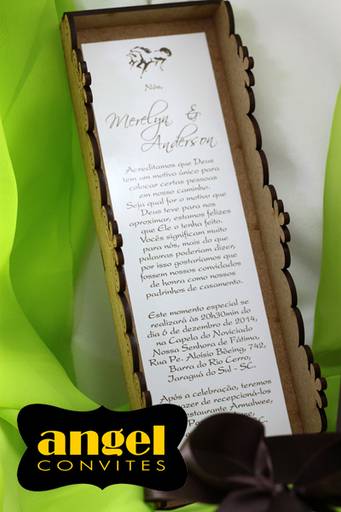 Nós,
Merelyn &
Anderson
Acreditamos que Deus
tem um motivo único para
colocar certas pessoas
em nosso caminho.
Seja qual for o motivo que
Deus teve para nos
aproximar, estamos felizes
que Ele o tenha feito.
Vocês significam muito
para nós, mais do que
palavras poderiam dizer,
por isso gostaríamos que
fossem nossos convidados
de honra como nossos
padrinhos de casamento.
Este momento especial se
realizará às 20h30min do
dia 6 de dezembro de 2014,
na Capela do Noviciado
Nossa Senhora de Fátima,
Rua Pe. Aloísio Böeing, 742,
Barra do Rio Cerro,
Jaraguá do Sul - SC.
Após a celebração, teremos
azer de recepcioná-los
estaurante Armalwee,
angel
CONVITES